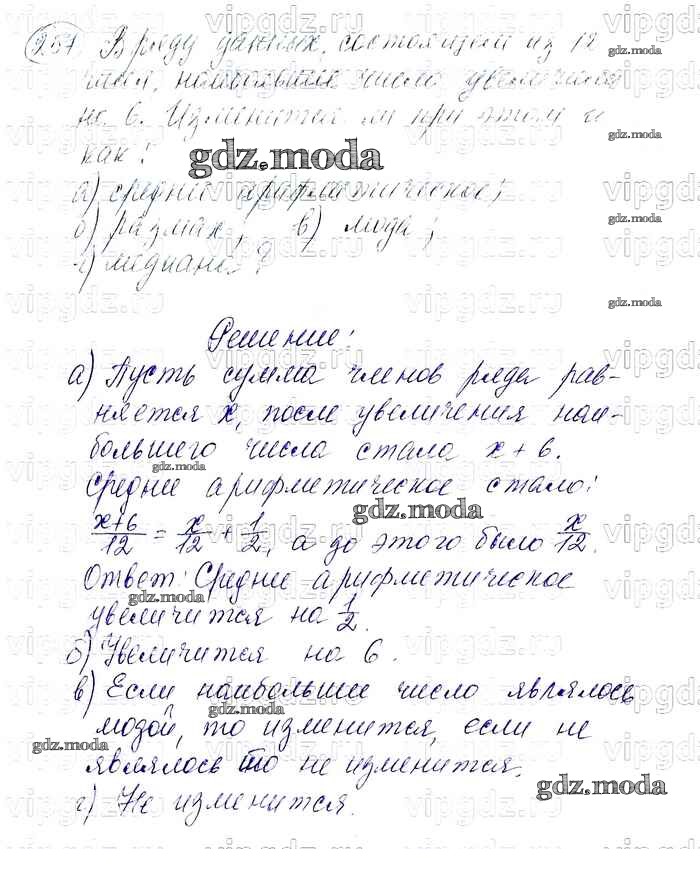 257. В ряду данных, состоящем из 12
чисел, наибольшее число увеличили
на 6. Изменится ли при этом и
как:
gdz.moda
а) среднее арифметическое;
б) размах; в) мода;
г) медиана?
Решение:
а) Пусть сумма членов ряда рав-
няется x, после увеличения наи-
большего числа стала x + 6.
Среднее арифметическое стало:
x+6/12 = x/12 + 1/2, а до этого было x/12.
Ответ: Среднее арифметическое
увеличится на 1/2.
б) Увеличится на 6.
в) Если наибольшее число являлось
модой, то изменится, если не
являлось то не изменится.
г) Не изменится.
gdz.moda
vipgdz.ru